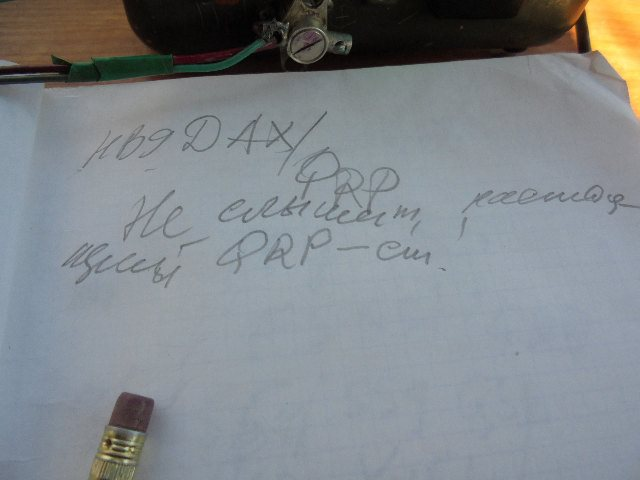 HB9DAX/
QRP
Не слышит, настоя-
щий QRP-ст.